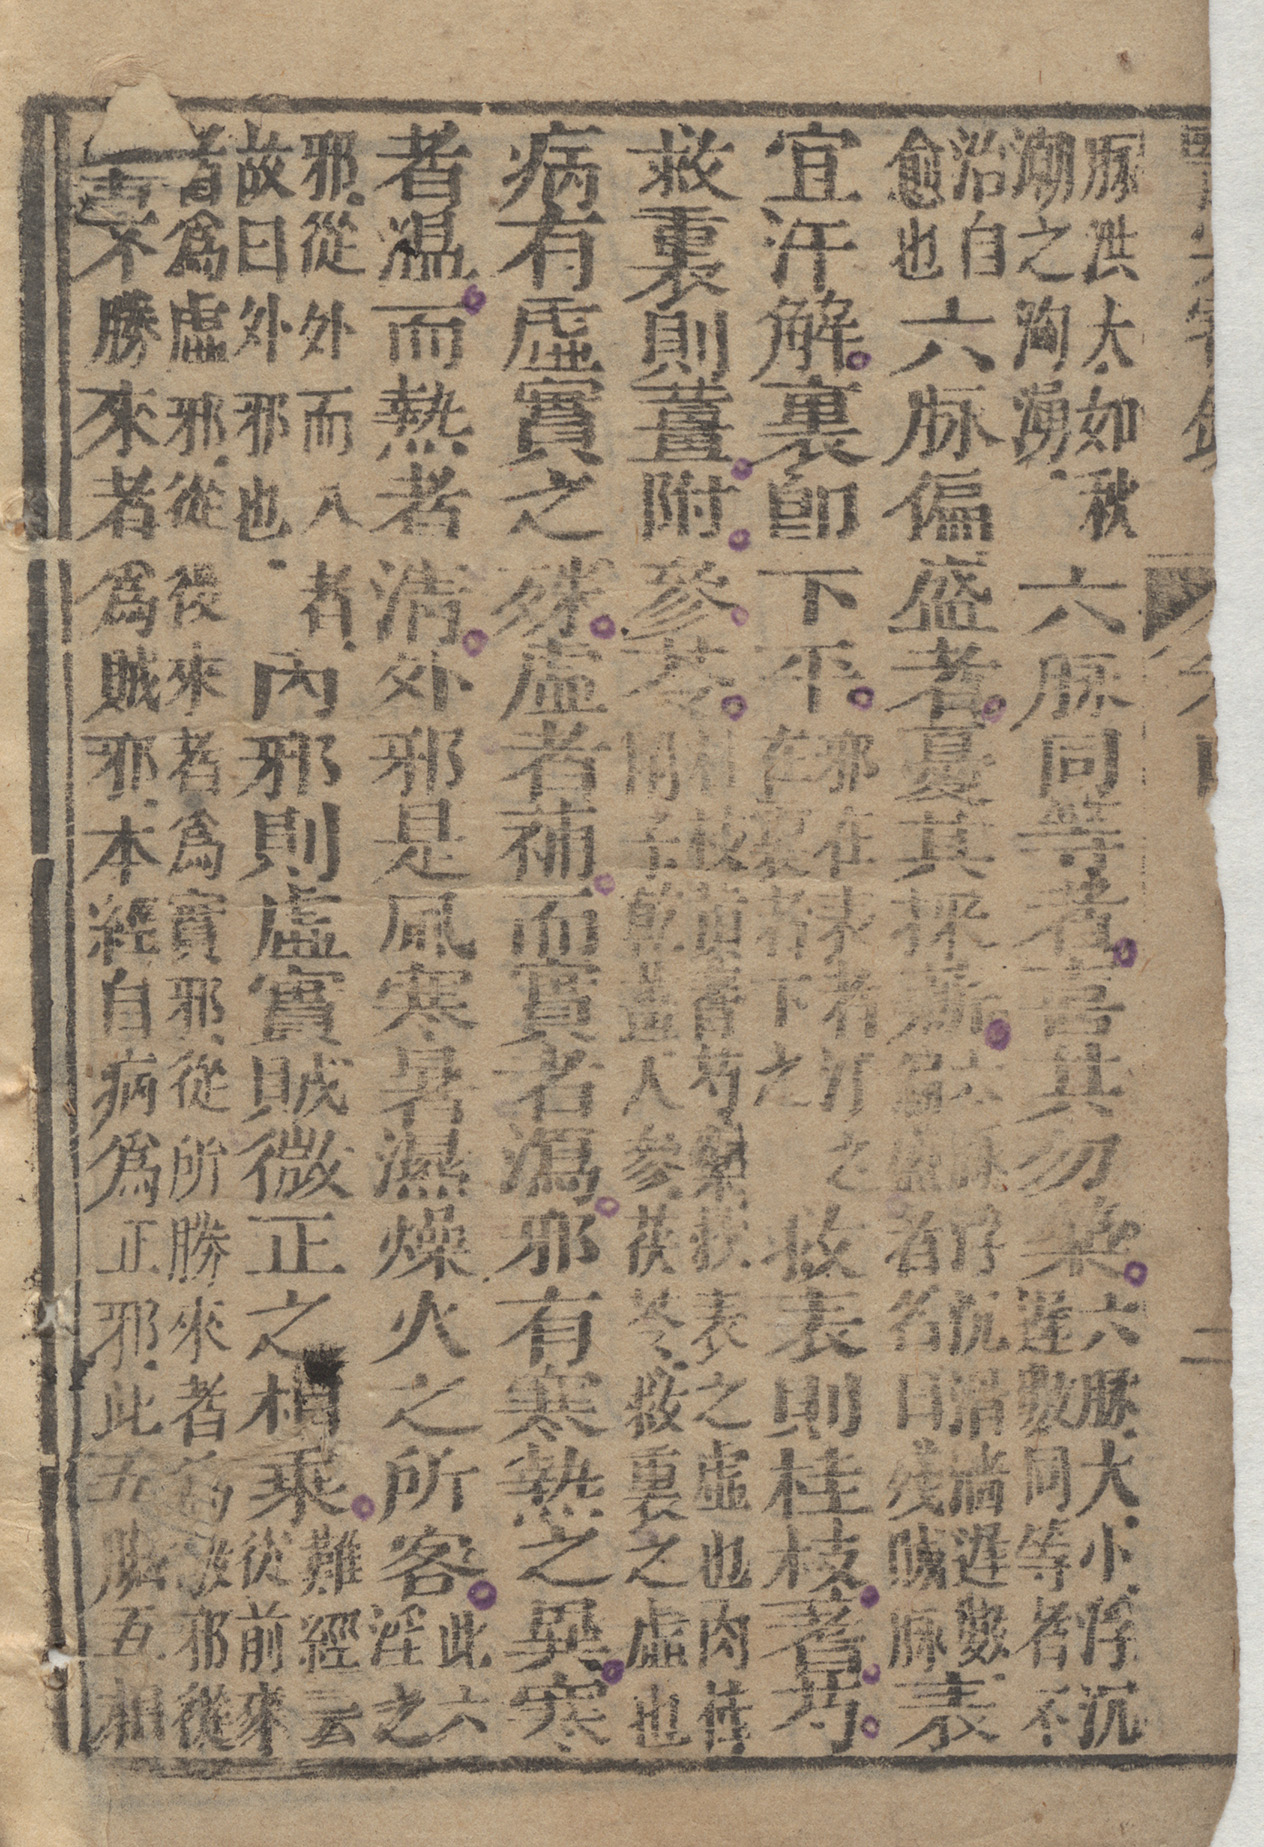 脉洪大如秋潮之洶湧六脉同等者喜其勿藥六脉大小浮沉遲數同等者不
治自愈也六脉偏盛者憂其採薪六脉浮沉滑濇遲數偏盛者名曰殘賊脉表
宜汗解裏卽下平邪在表者汗之在裏者下之救表則桂枝蓍芍
救裏則薑附參苓桂枝黄蓍芍藥救表之虛也肉桂附子乾薑人參茯苓救裏之虛也
病有虛實之殊虛者補而實者瀉邪有寒熱之異寒
者溫而熱者清外邪是風寒暑濕燥火之所客此六淫之
邪從外而入者故曰外邪也內邪則虛實賊微正之相乘難經云從前來
者爲虛邪從後來者爲實邪從所勝來者爲微邪從不勝來者爲賊邪本經自病爲正邪此五臟五相